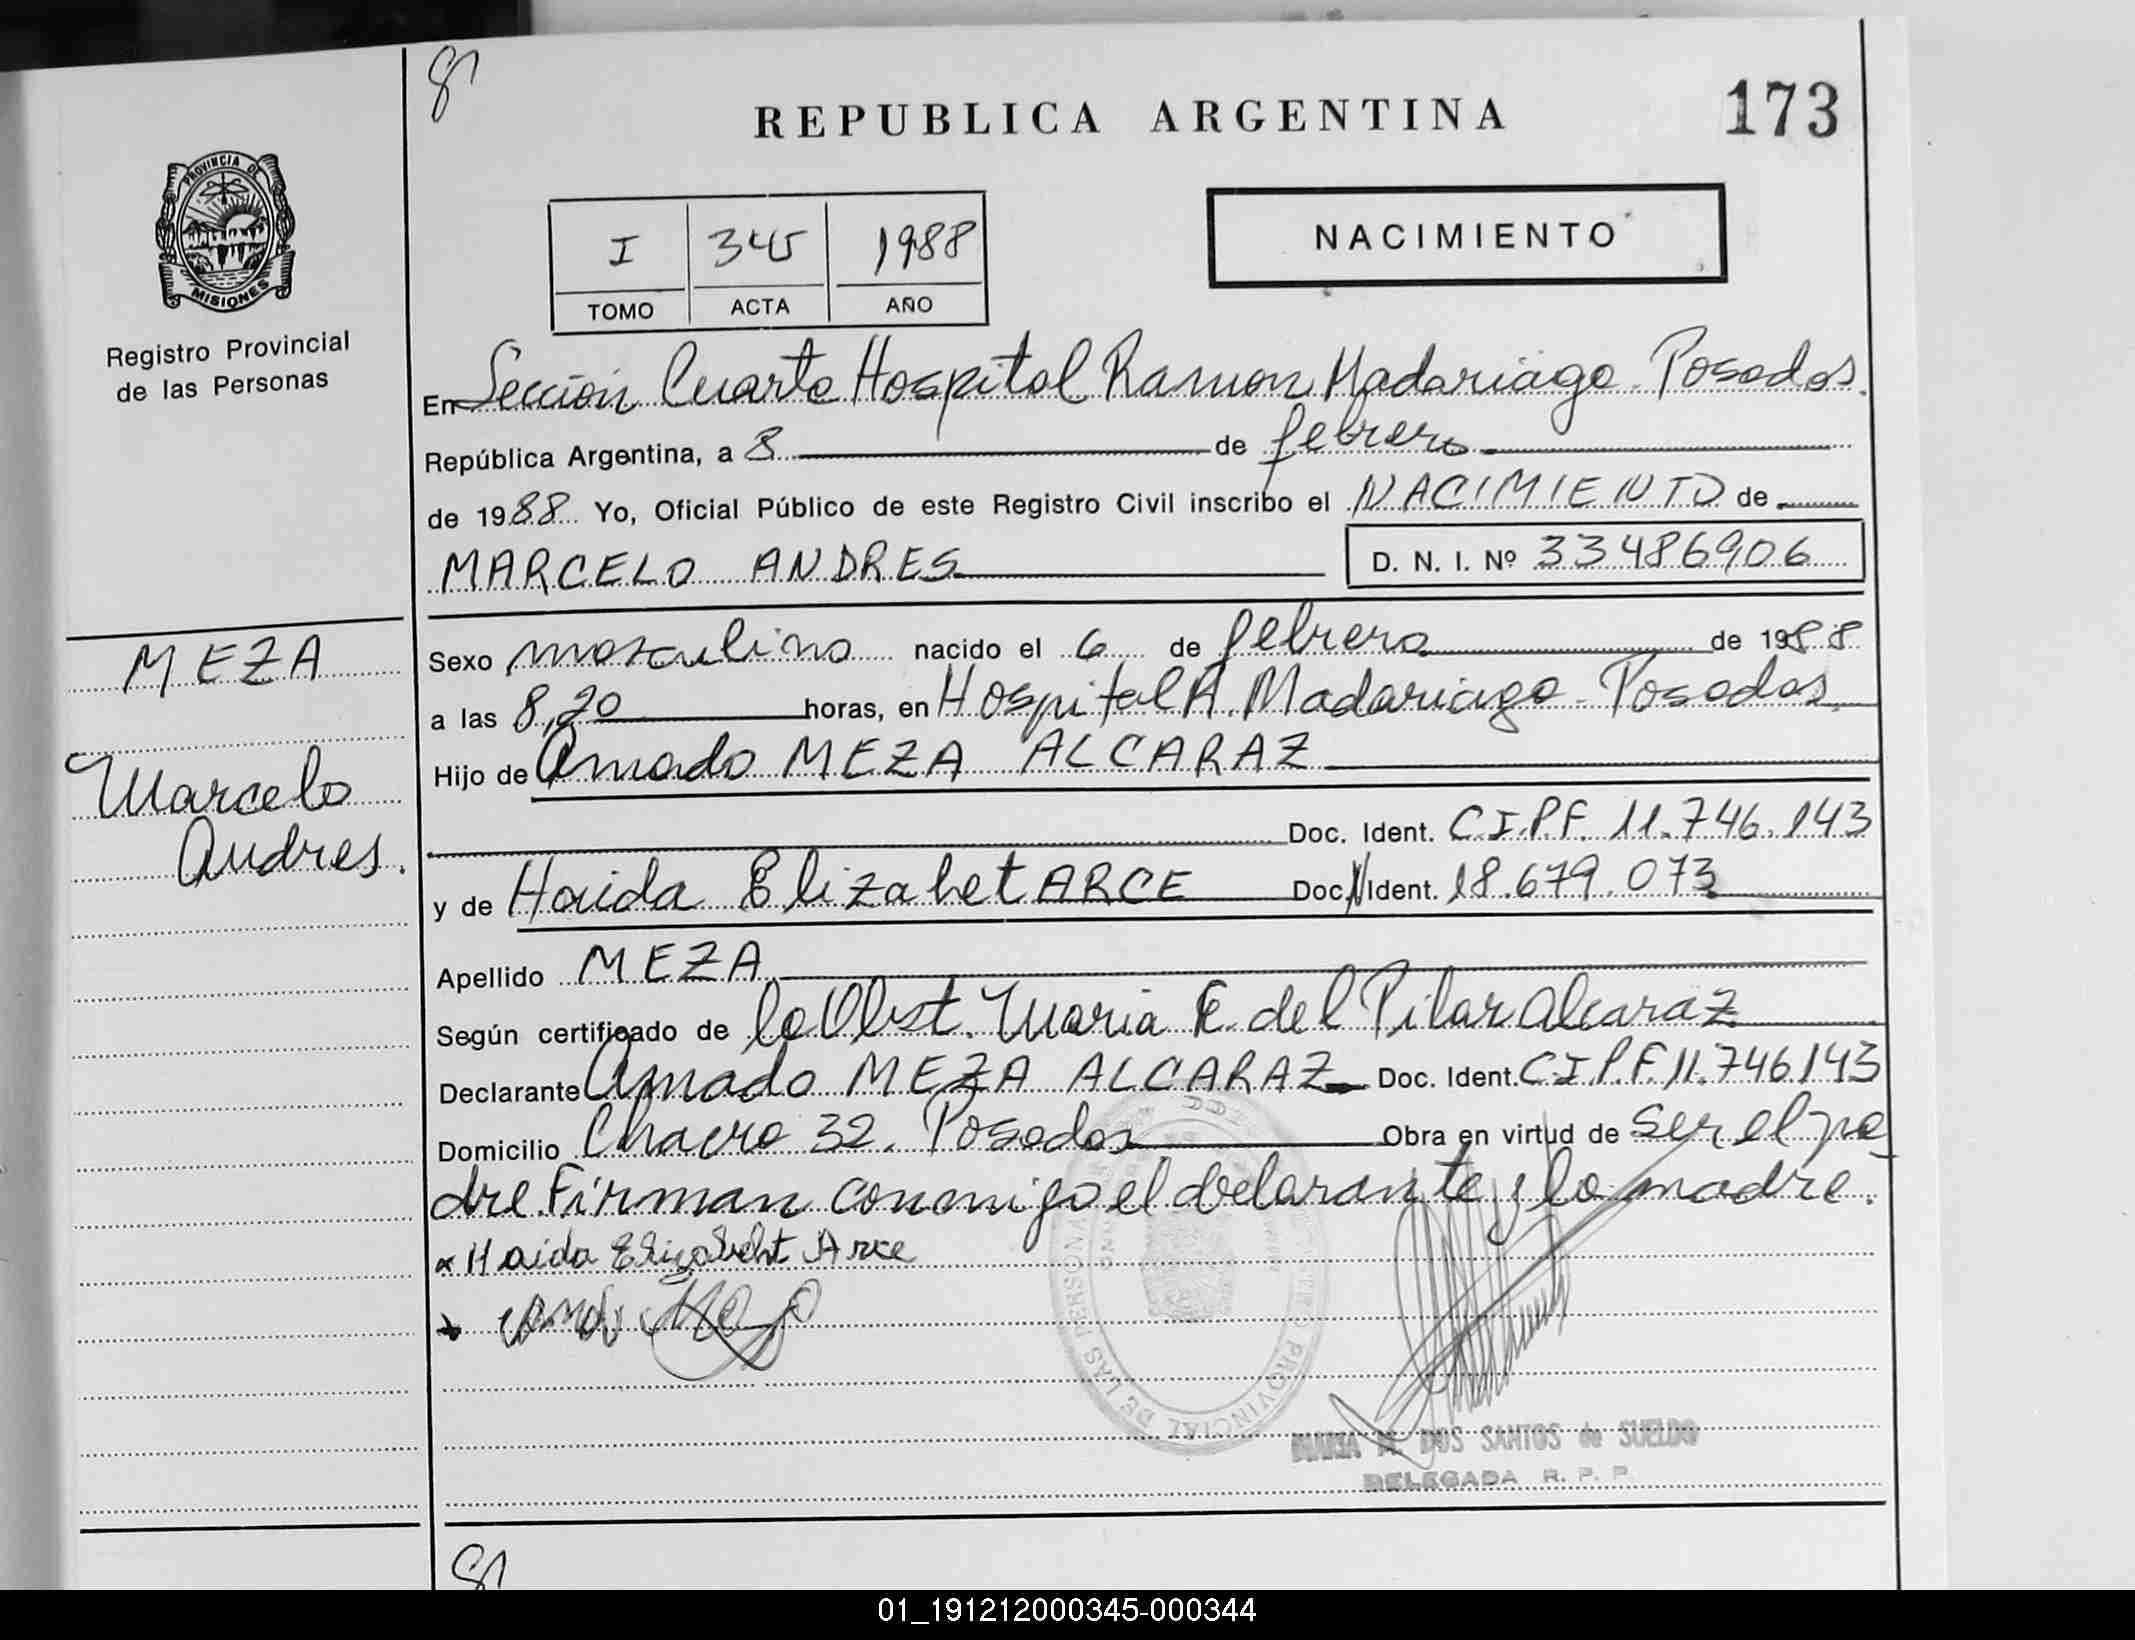 81
REPUBLICA ARGENTINA
173
PROVINCIA DE
MISIONES
Registro Provincial
de las Personas
I 345 1988
TOMO ACTA AÑO
NACIMIENTO
En Sección Cuarta Hospital Ramon Madariaga - Posadas.
República Argentina, a 8 de febrero
de 1988 Yo, Oficial Público de este Registro Civil inscribo el NACIMIENTO de
MARCELO ANDRES
D. N. I. Nº 33486906
MEZA
Marcelo
Andres.
Sexo masculino nacido el 6 de febrero de 1988
a las 8,20 horas, en Hospital R. Madariaga - Posadas.
Hijo de Amado MEZA ALCARAZ
Doc. Ident. C.I.P.F. 11.746.143
y de Haida Elizabet ARCE Doc. Ident. 18.679.073
Apellido MEZA
Según certificado de la Obst. Maria E. del Pilar Alcaraz
Declarante Amado MEZA ALCARAZ Doc. Ident. C.I.P.F. 11.746143
Domicilio Chacra 32. Posadas Obra en virtud de ser el pa
dre. Firman conmigo el declarante y la madre.
Haida Elizabeht Arce
PROVINCIAL DE LAS PERSONAS
MARIA M. DOS SANTOS de SUELDO
DELEGADA R. P. P.
81
01_191212000345-000344